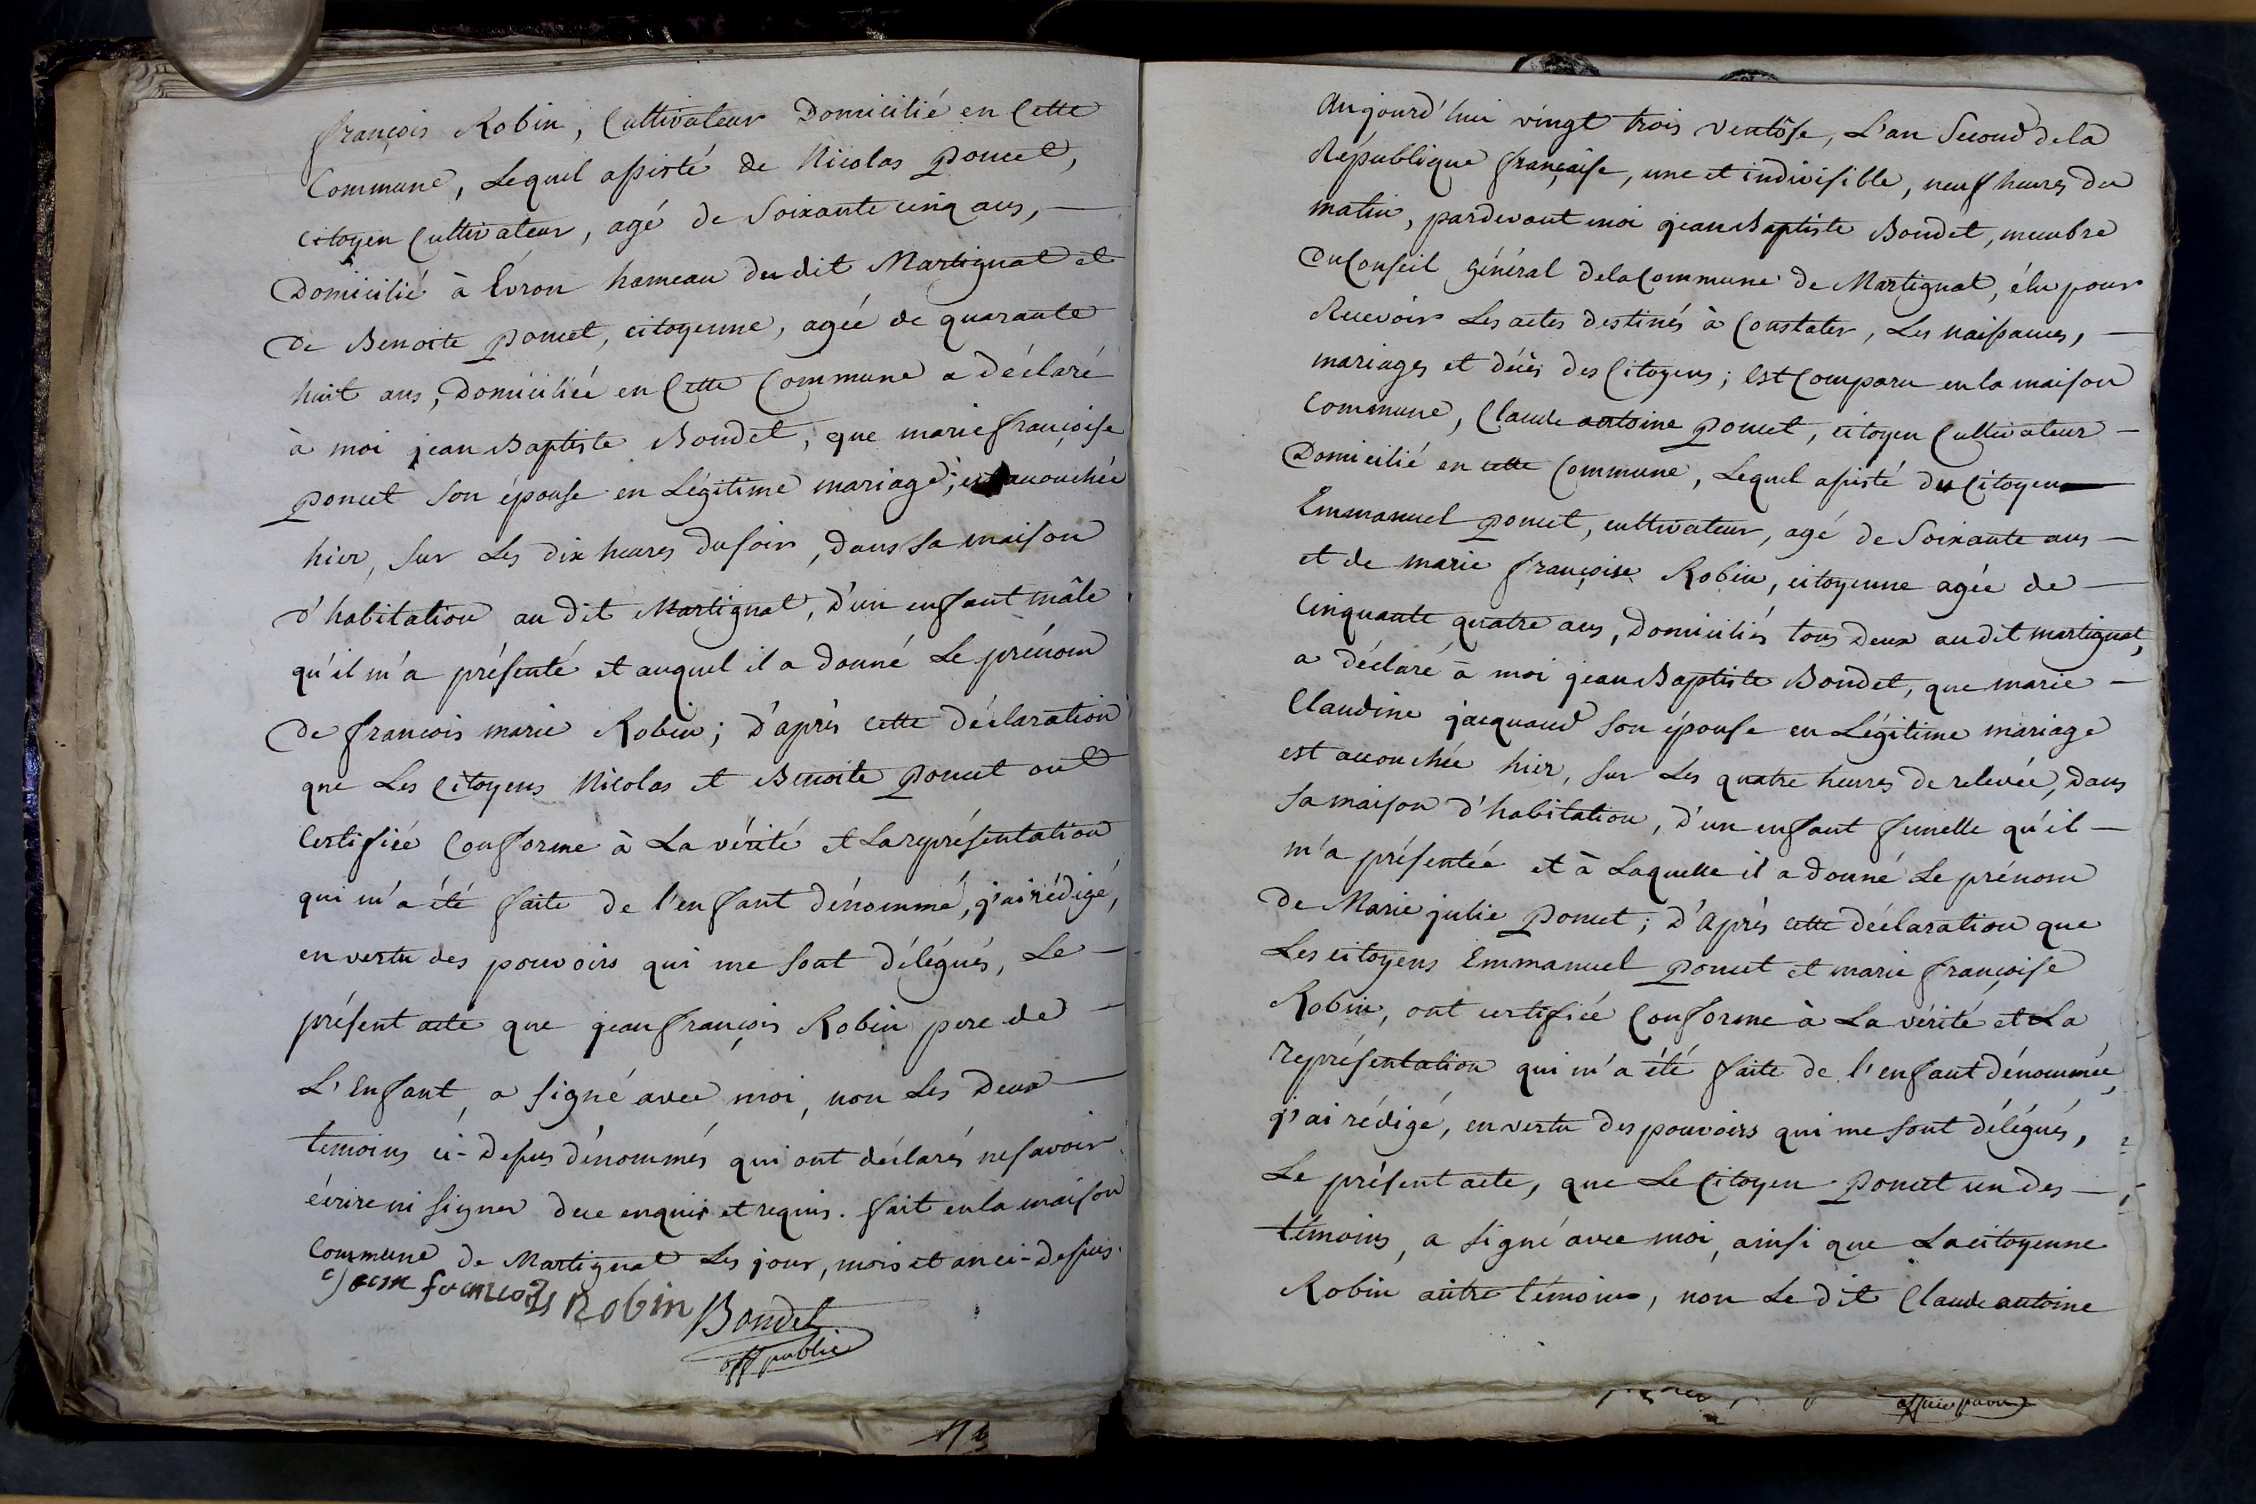 françois Robin, Cultivateur Domicilié en Cette
Commune, Lequel assisté de Nicolas Poncet,
Citoyen Cultivateur, agé de Soixante cinq ans,
Domicilié à Évron hameau du dit Martignat et
De Benoite Poncet, citoyenne, agée de quarante
huit ans, Domiciliée en Cette Commune a déclaré
à moi jean Baptiste Bondet, que marie françoise
Poncet son épouse en Légitime mariage, est accouchée
hier, sur Les dix heures du soir, dans sa maison
d'habitation au dit Martignat, d'un enfant mâle
qu'il m'a présenté et auquel il a donné Le prénom
De françois marie Robin; D'après cette déclaration
que Les Citoyens Nicolas et Benoite Poncet ont
Certifiée Conforme à La vérité et La représentation
qui m'a été faite de l'enfant dénommé, j'ai rédigé,
en vertu des pouvoirs qui me sont délégués, Le
présent acte que jean françois Robin pere de
L'Enfant, a signé avec moi, non Les Deux
temoins ci-dessus dénommés qui ont déclarés ne savoir
écrire ni signer de ce enquis et requis. fait en la maison
Commune de Martignat Les jour, mois et an ci-dessus.
jean francois Robin Bondet
off public
Aujourd'hui vingt trois ventôse, L'an Second de la
République française, une et indivisible, neuf heures du
matin, pardevant moi jean Baptiste Bondet, membre
Du Conseil général de la Commune de Martignat, élu pour
Recevoir Les actes destinés à Constater, Les naissances,
mariages et décès des Citoyens; Est Comparu en la maison
Commune, Claude antoine Poncet, citoyen Cultivateur
Domicilié en cette Commune, Lequel assisté du Citoyen
Emmanuel Poncet, cultivateur, agé de Soixante ans
et de marie françoise Robin, citoyenne agée de
Cinquante quatre ans, Domiciliés tous Deux au dit martignat,
a déclaré à moi jean Baptiste Bondet, que marie
Claudine jacquand son épouse en Légitime mariage
est accouchée hier, sur Les quatre heures de relevée, Dans
sa maison d'habitation, d'un enfant femelle qu'il
m'a présentée et à Laquelle il a donné Le prénom
De Marie julie Poncet; D'après cette déclaration que
Les citoyens Emmanuel Poncet et marie françoise
Robin, ont certifiée Conforme à La vérité et La
représentation qui m'a été faite de l'enfant dénommée,
j'ai rédigé, en vertu des pouvoirs qui me sont délégués,
Le présent acte, que Le Citoyen Poncet un des
témoins, a signé avec moi, ainsi que La citoyenne
Robin autre témoins, non Le dit Claude antoine